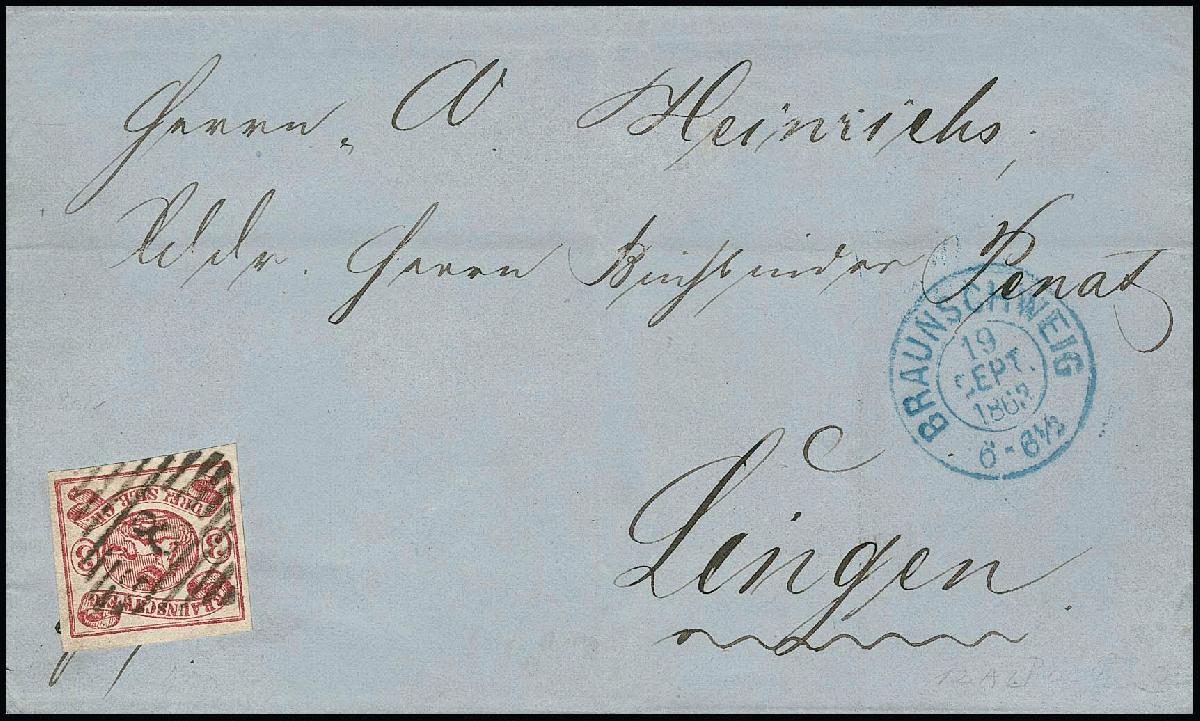 Herrn A Heinrichs,
Addr. Herrn Buchbinder Penat
BRAUNSCHWEIG
19
SEPT.
1863
6-6½
Lingen
DREI SILB. GR.
3 3
8
BRAUNSCHWEIG